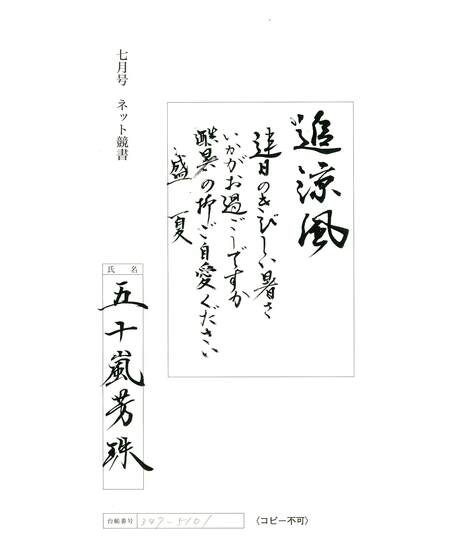 七月号　ネット競書
追涼風
連日のきびしい暑さ
いかがお過ごしですか
酷暑の折ご自愛ください
盛夏
氏名
五十嵐芳珠
台帳番号 347-5101
〈コピー不可〉